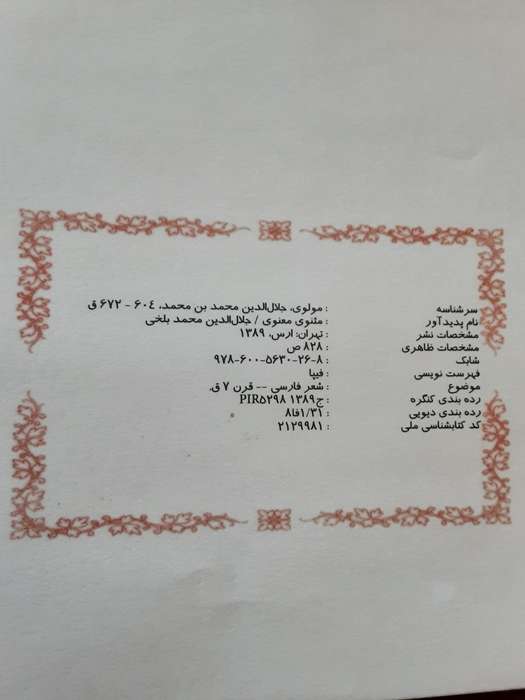 سرشناسه : مولوی، جلال‌الدین محمد بن محمد، ۶۰٤ - ۶۷۲ ق
نام پدیدآور : مثنوی معنوی / جلال‌الدین محمد بلخی
مشخصات نشر : تهران: ارس، ۱۳۸۹
مشخصات ظاهری : ۸۲۸ ص
شابک : ۹۷۸-۶۰۰-۵۶۳۰-۲۶-۸
فهرست نویسی : فیپا
موضوع : شعر فارسی -- قرن ۷ ق.
رده بندی کنگره : PIR۵۲۹۸ ۱۳۸۹ ج
رده بندی دیویی : ۸فا۱/۳۱
کد کتابشناسی ملی : ۲۱۲۹۹۸۱